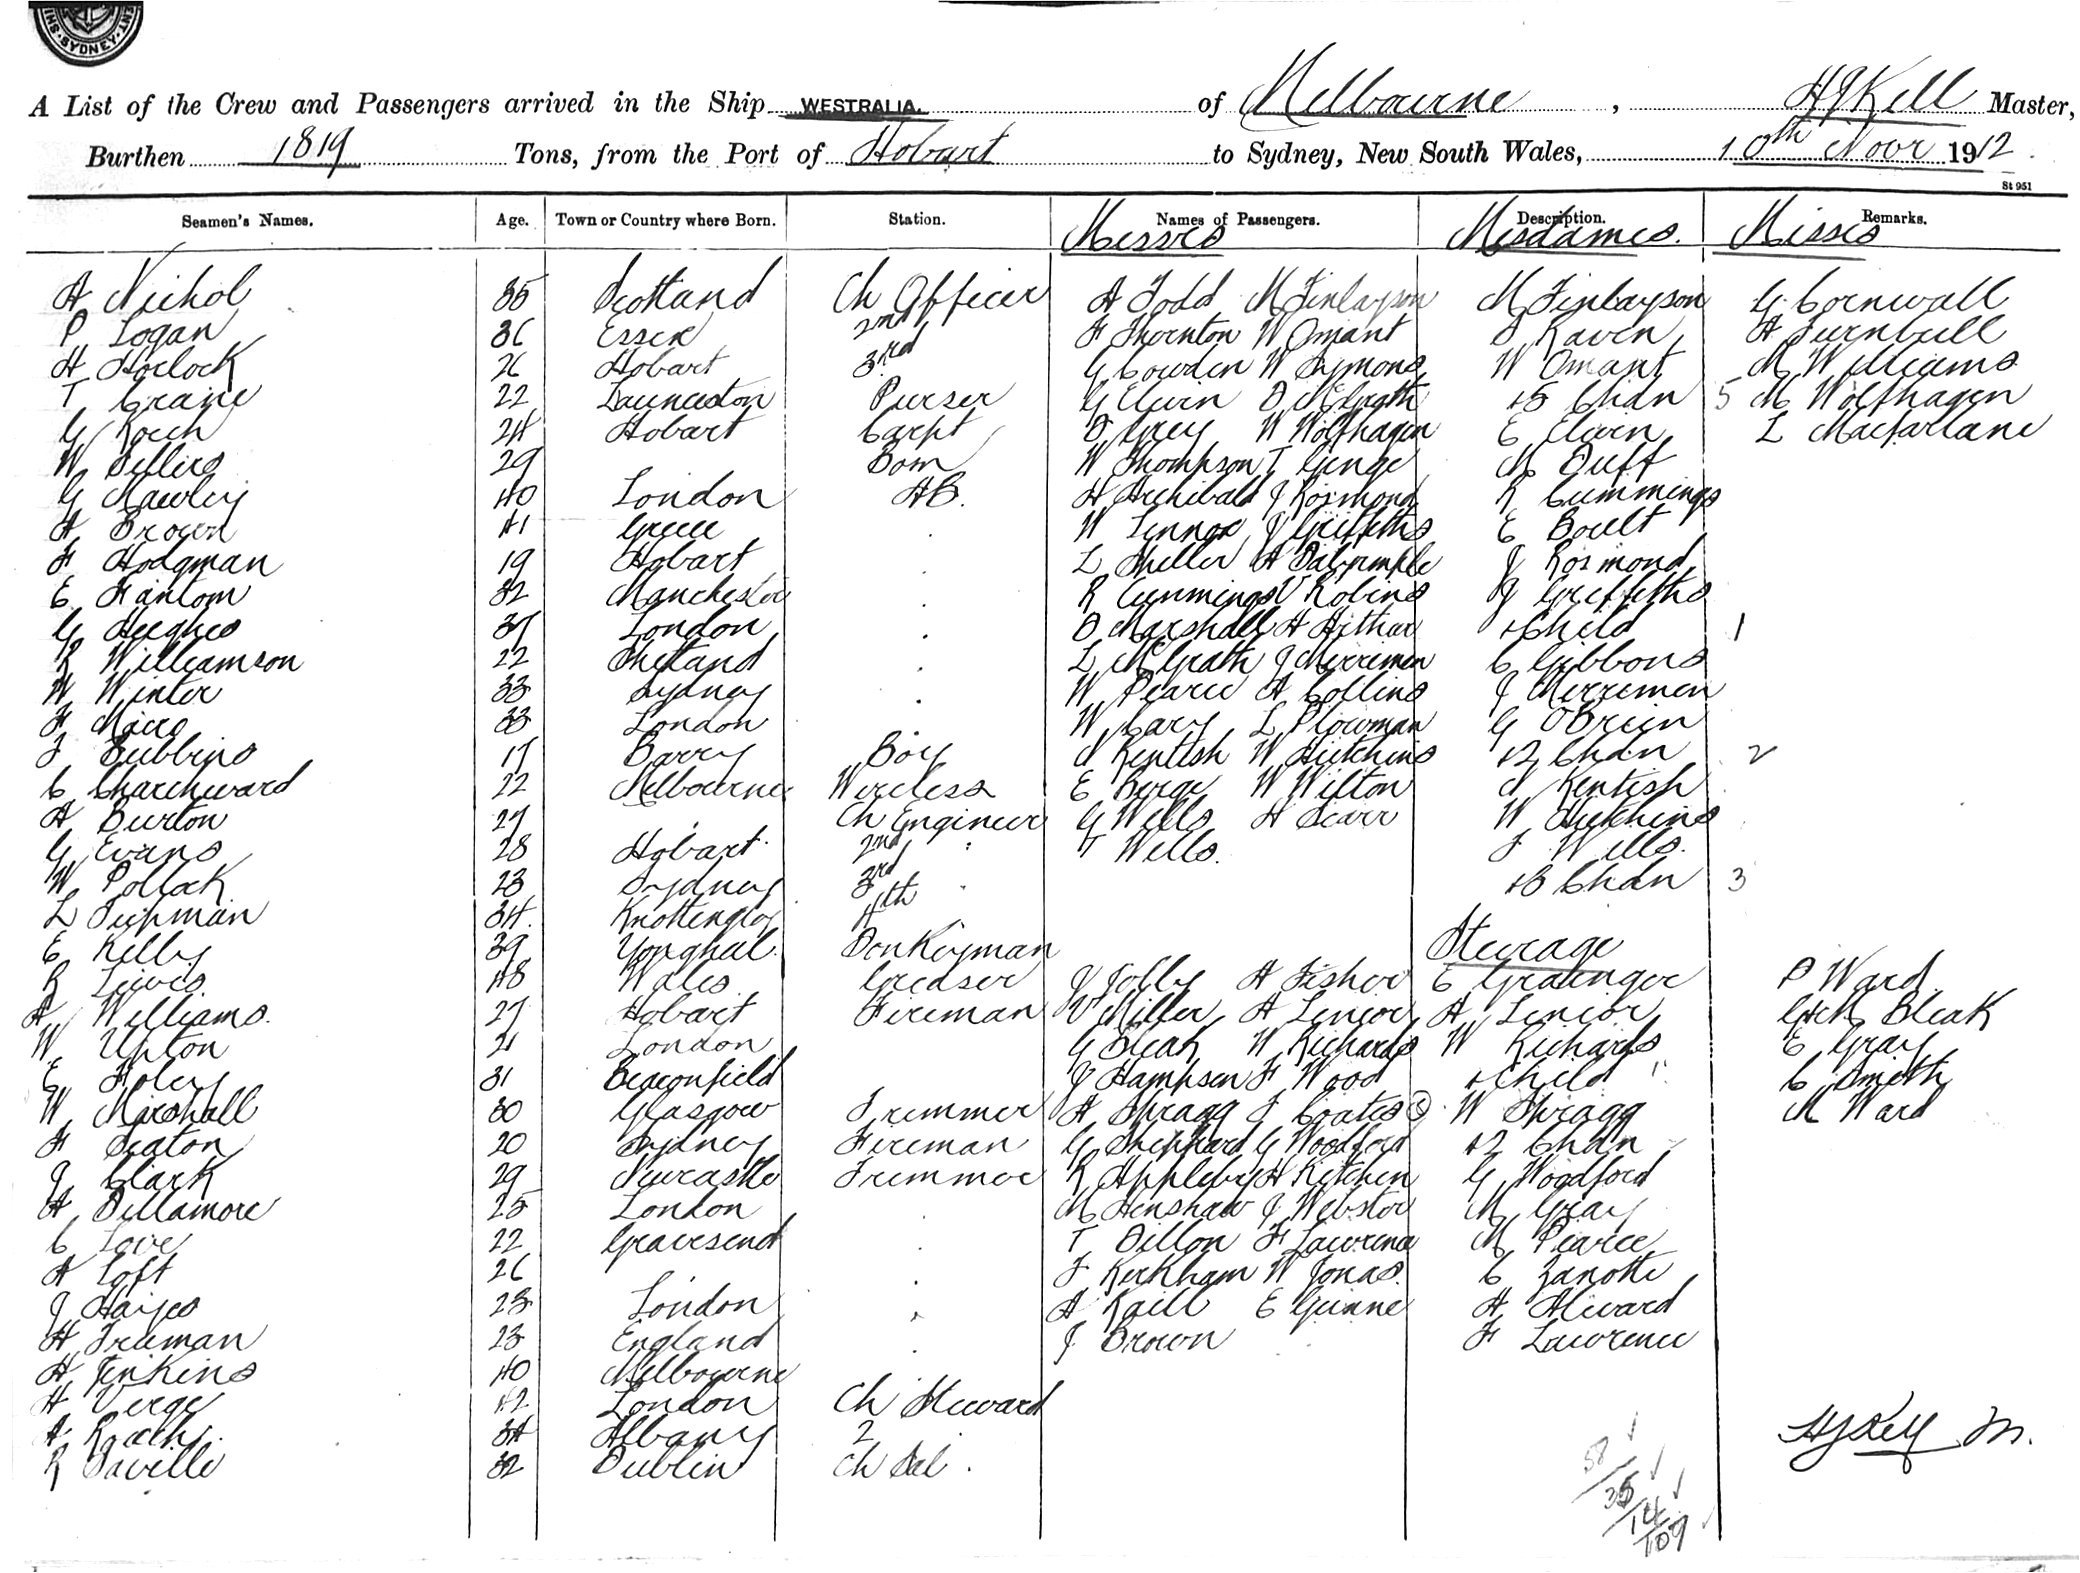 SYDNEY
A List of the Crew and Passengers arrived in the Ship WESTRALIA. of Melbourne, HJKell Master,
Burthen 1819 Tons, from the Port of Hobart to Sydney, New South Wales, 10th Novr 1912.
St 951
Seamen's Names. Age. Town or Country where Born. Station. Names of Passengers. Description. Remarks.
Messrs Mesdames. Misses
A Nichol 35 Scotland Ch Officer A Todd M Finlayson M Finlayson G Cornwall
P Logan 36 Essex 2nd F Thornton W Omant D Raven A Turnbull
H Horlock 26 Hobart 3rd G Cowden W Symons W Omant M Williams
T Crane 22 Launceston Purser G Elwin D McGrath +5 Chdn 5 M Wolfhagen
G Koch 24 Hobart Carpt D Grey W Wolfhagen E Elwin L Macfarlane
W Sellers 29 Bosn W Thompson T Genge M Duff
G Mawley 40 London AB. H Archibald J Rosmond R Cummings
A Brown 41 Greece W Lennox J Griffiths E Boult
F Hodgman 19 Hobart L Sheller A Dalrymple J Rosmond
E Fantom 32 Manchester R Cummings V Robins J Griffiths
G Hughes 37 London D Marshall A +Child 1
R Williamson 22 Shetland L McGrath J Merrimen C Gibbons
W Winter 33 Sydney W Pearce A Collins J Merrimen
F 33 London W Cary L Plowman G OBrien
J Bubbins 17 Barry Boy J Kentish W Hutchins +2 Chdn 2
C Charchward 22 Melbourne Wireless E Berge W Wilton J Kentish
A Burton 27 Ch Engineer G Wells H Scarr W Hutchins
G Evans 28 Hobart 2nd T Wells. F Wells.
W Pollock 23 Sydney 3rd +3 Chdn 3
L Tiepman 34. Knottingley 4th
E Kelly 39 Yonghal Donkeyman Steerage
R Lewis 48 Wales Greaser J Jolly A Fisher E Grainger P Ward
A Williams 27 Hobart Fireman V Miller A Senior A Senior G&M Bleak
W Upton 21 London G Bleak W Richards W Richards E Gray
E Holey 31 Beaconsfield J Hampson F Wood +Child " C Smith
W Marshall 30 Glasgow Trimmer A Shragg F Coates W Shragg M Ward
F Seaton 20 Sydney Fireman G Sheppard G Woodford +2 Chdn
J Clark 29 Newcastle Trimmer R Appleby A Kitchen G Woodford
H Dillamore 25 London M Henshaw J Webster M Gray
C Love 22 Gravesend T Dillon F Lawrence M Pearce
A Loft 26 F Kirkham W Jonas. C Zanotti
J Hayes 23 London A Kaill E Gunne A Alward
H Freeman 23 England J Brown F Lawrence
H Jenkins 40 Melbourne
H Verge 42 London Ch Steward
A 34 Albany 2
R Saville 32 Dublin Ch Sal.
HJKell M.
58
35
16
109